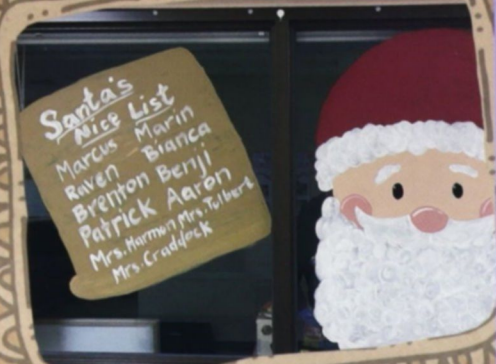 Santa's
Nice List
Marcus Marin
Raven Bianca
Brenton Benji
Patrick Aaron
Mrs. Harmon Mrs. Tolbert
Mrs. Craddock